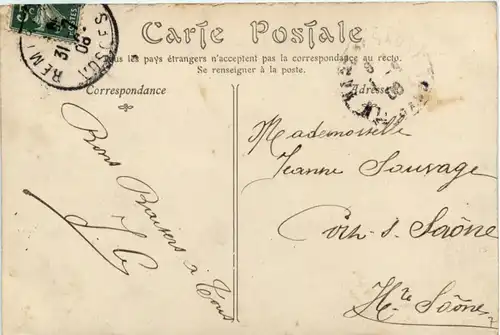 5c
POSTES
31 -7
08
Carte Postale
Tous les pays étrangers n'acceptent pas la correspondance au recto.
Se renseigner à la poste.
Correspondance
Adresse
Bons Baisers à Tous
Mademoiselle
Jeanne Sauvage
s. Saône
Hte Saône